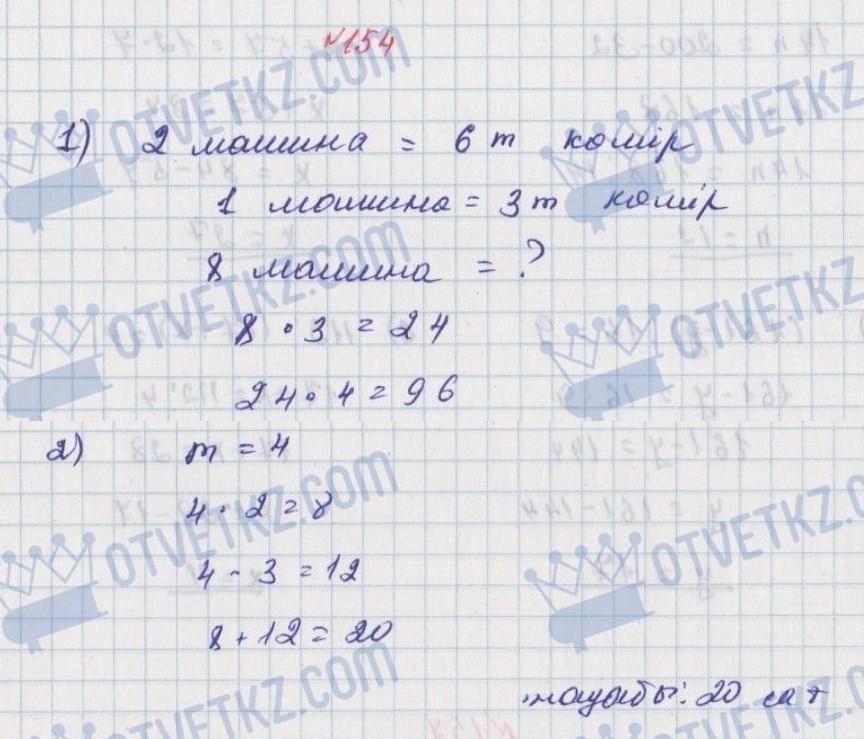 №154
1) 2 машина = 6 т көмір
1 машина = 3 т көмір
8 машина = ?
8 · 3 = 24
24 · 4 = 96
2) m = 4
4 · 2 = 8
4 - 3 = 12
8 + 12 = 20
жауабы: 20 сағ
OTVETKZ.COM
OTVETKZ.COM
OTVETKZ.COM
OTVETKZ.COM
OTVETKZ.COM
OTVETKZ.COM